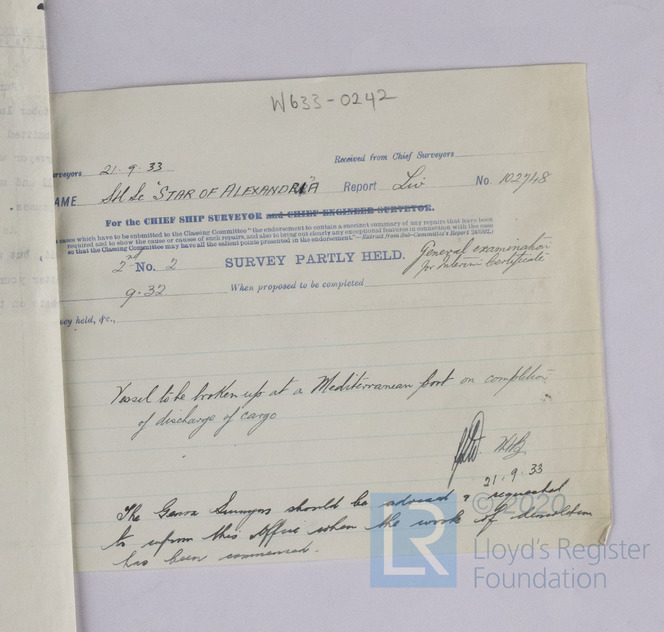 W633-0242
Received from Chief Surveyors
urveyors 21.9.33
AME "STAR OF ALEXANDRIA Report Liv No. 102748
For the CHIEF SHIP SURVEYOR and CHIEF ENGINEER SURVEYOR.
cases which have to be submitted to the Classing Committee "the endorsement to contain a succinct summary of any repairs that have been
required and to show the cause or causes of such repairs, and also to bring out clearly any exceptional features in connection with the case
so that the Classing Committee may have all the salient points presented in the endorsement."—Extract from Sub-Committee's Report
2nd No. 2 SURVEY PARTLY HELD. General examination
for Interim Certificate
9.32 When proposed to be completed
vey held, &c.,
Vessel to be broken up at a Mediterranean port on completion
of discharge of cargo
21.9.33
The Genoa Surveyors should be advised & requested
to inform this Office when the work of demolition
has been commenced.
© 2020
LR
Lloyd's Register
Foundation